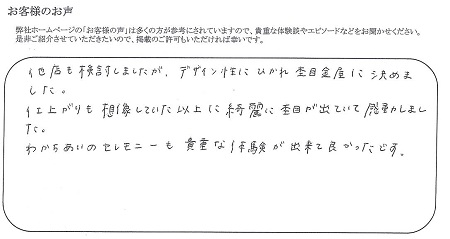 お客様のお声
弊社ホームページの「お客様の声」は多くの方が参考にされていますので、貴重な体験談やエピソードなどをお聞かせください。
是非ご紹介させていただきたいので、掲載のご許可もいただければ幸いです。
他店も検討しましたが、デザイン性にひかれ杢目金屋に決めま
した。
仕上がりも想像していた以上に綺麗に杢目が出ていて感動しまし
た。
わかちあいのセレモニーも貴重な体験が出来て良かったです。